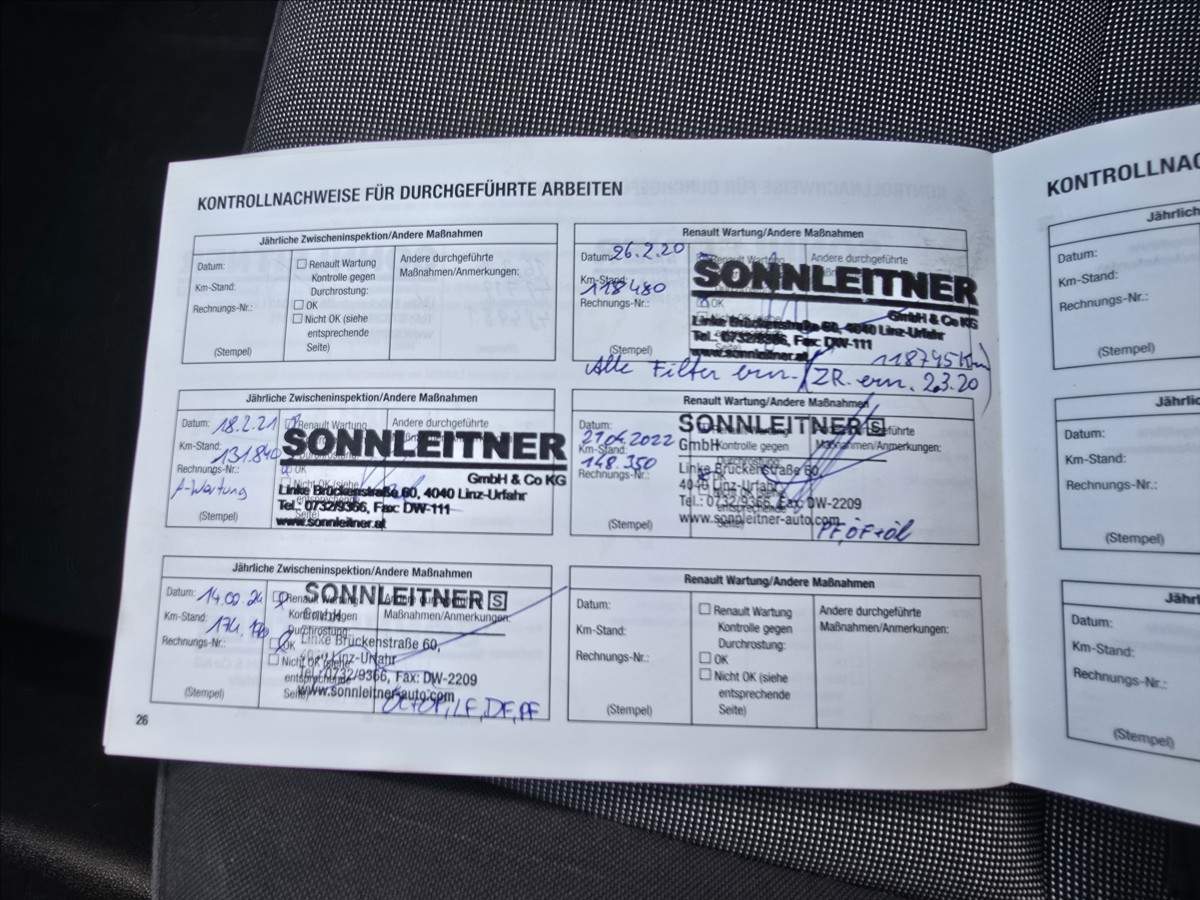 KONTROLLNACHWEISE FÜR DURCHGEFÜHRTE ARBEITEN
Jährliche Zwischeninspektion/Andere Maßnahmen
Datum:
Km-Stand:
Rechnungs-Nr.:
(Stempel)
Renault Wartung
Kontrolle gegen
Durchrostung:
OK
Nicht OK (siehe
entsprechende
Seite)
Andere durchgeführte
Maßnahmen/Anmerkungen:
Renault Wartung/Andere Maßnahmen
Datum: 26.2.20
Km-Stand: 118480
Rechnungs-Nr.:
(Stempel)
Andere durchgeführte
OK
SONNLEITNER
GmbH & Co KG
Linke Brückenstraße 60, 4040 Linz-Urfahr
Tel.: 0732/9366, Fax: DW-111
www.sonnleitner.at
118745 Km
Alle Filter ern. / ZR. ern. 2.3.20
Jährliche Zwischeninspektion/Andere Maßnahmen
Datum: 18.2.21
Km-Stand: 131.840
Rechnungs-Nr.:
A-Wartung
(Stempel)
Renault Wartung
OK
Nicht OK (siehe
Andere durchgeführte
SONNLEITNER
GmbH & Co KG
Linke Brückenstraße 60, 4040 Linz-Urfahr
Tel.: 0732/9366, Fax: DW-111
www.sonnleitner.at
Renault Wartung/Andere Maßnahmen
Datum: 21.04.2022
Km-Stand: 148.350
Rechnungs-Nr.:
(Stempel)
Kontrolle gegen
Maßnahmen/Anmerkungen:
SONNLEITNER S
GmbH
Linke Brückenstraße 60,
4040 Linz-Urfahr
Tel.: 0732/9366, Fax: DW-2209
www.sonnleitner-auto.com
PF, ÖF+Öl
Jährliche Zwischeninspektion/Andere Maßnahmen
Datum:
Km-Stand:
Rechnungs-Nr.:
(Stempel)
Renault Wartung
Kontrolle gegen
Durchrostung:
OK
Nicht OK (siehe
entsprechende
Seite)
Maßnahmen/Anmerkungen:
SONNLEITNER S
GmbH
Linke Brückenstraße 60,
4040 Linz-Urfahr
Tel.: 0732/9366, Fax: DW-2209
www.sonnleitner-auto.com
LF, DF, PF
Renault Wartung/Andere Maßnahmen
Datum:
Km-Stand:
Rechnungs-Nr.:
(Stempel)
Renault Wartung
Kontrolle gegen
Durchrostung:
OK
Nicht OK (siehe
entsprechende
Seite)
Andere durchgeführte
Maßnahmen/Anmerkungen:
26
KONTROLLNAC
Jährlich
Datum:
Km-Stand:
Rechnungs-Nr.:
(Stempel)
Jährlic
Datum:
Km-Stand:
Rechnungs-Nr.:
(Stempel)
Jährl
Datum:
Km-Stand:
Rechnungs-Nr.:
(Stempel)